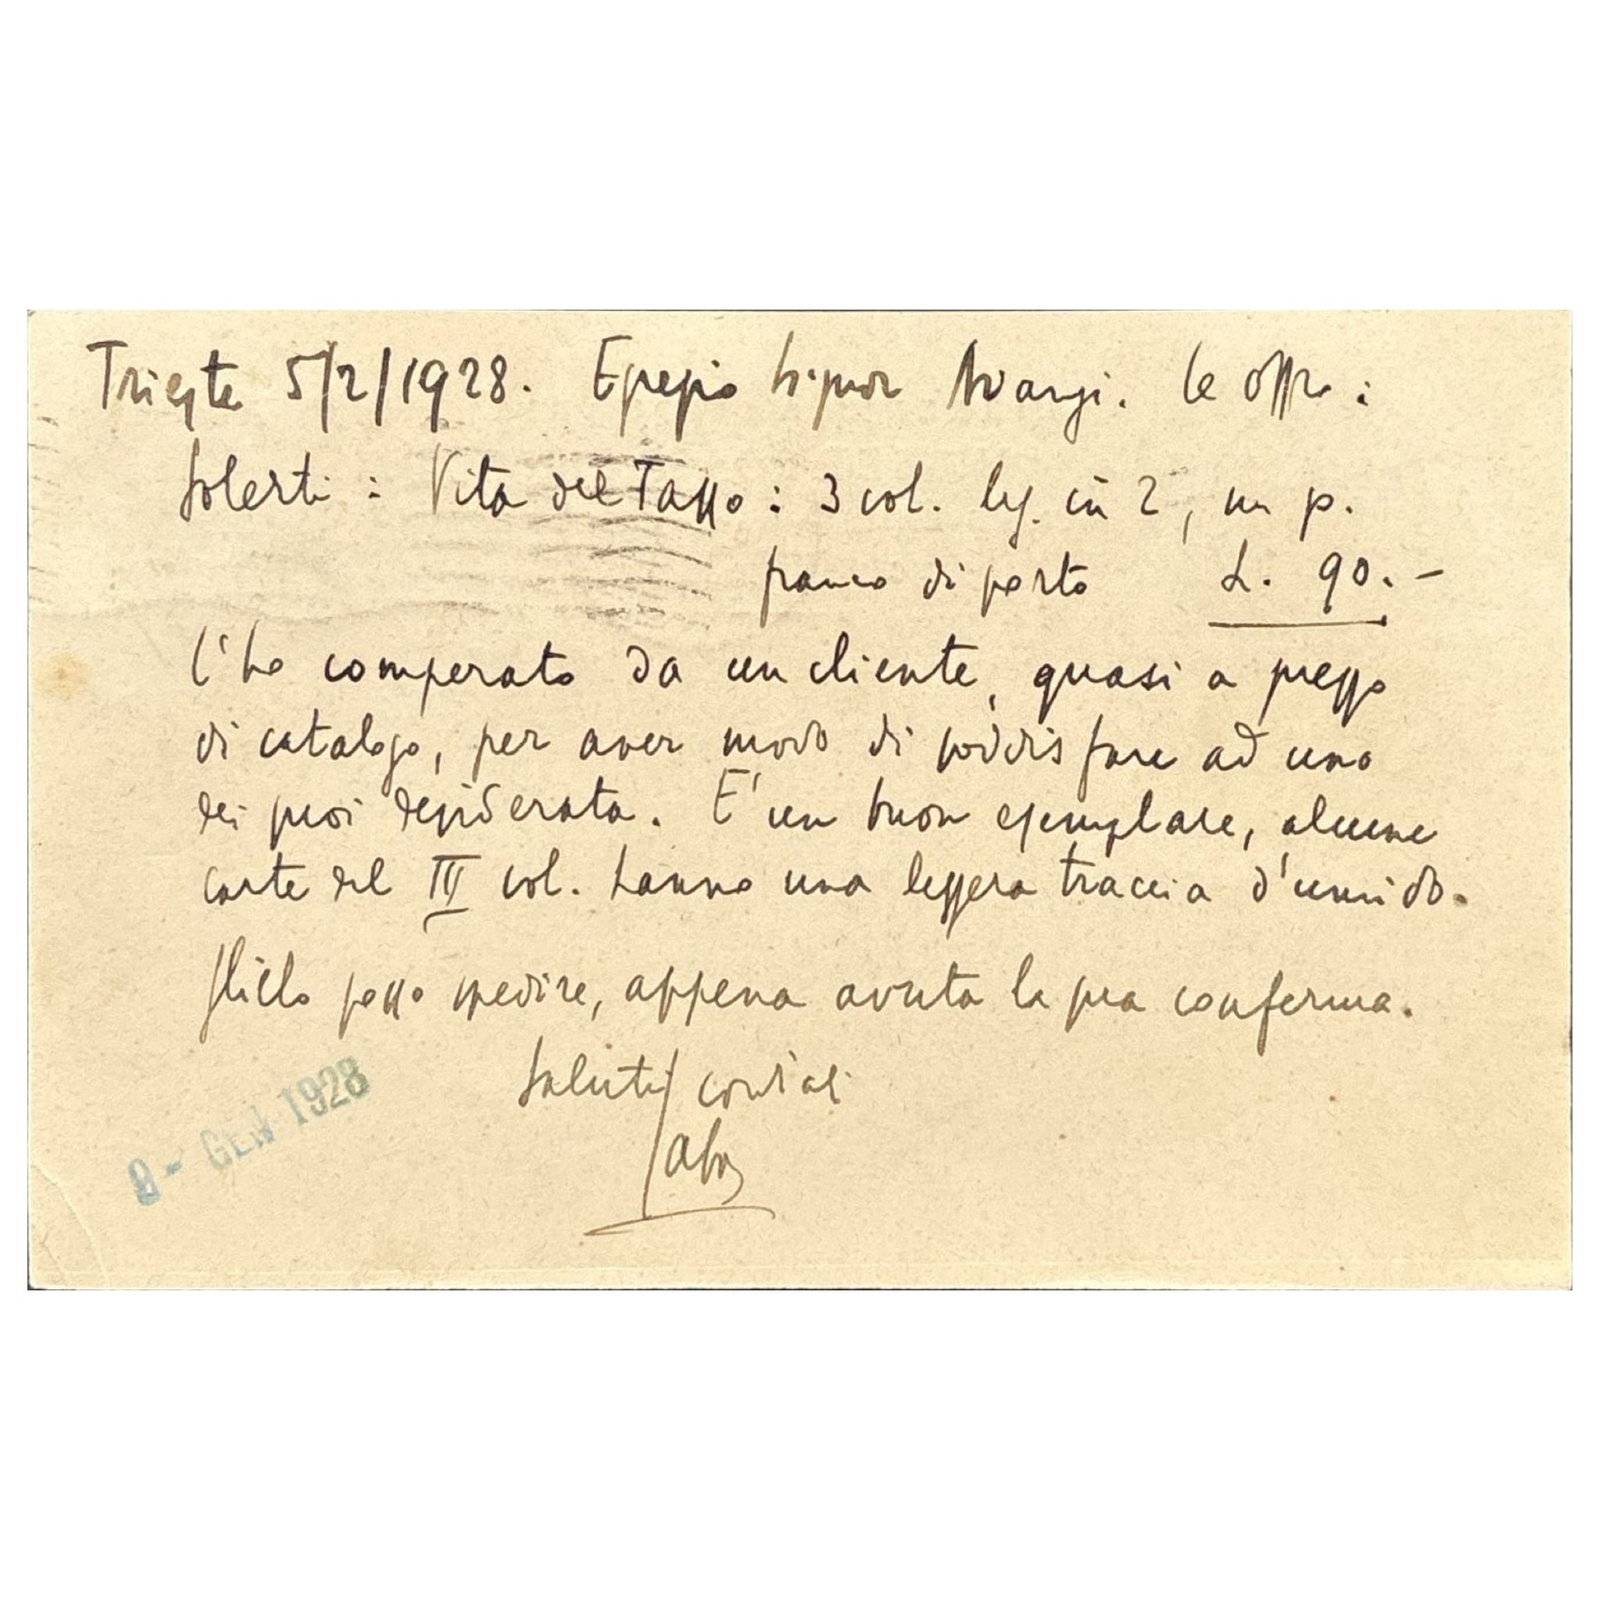 Trieste 5/2/1928. Egregio Signor Avanzi. Le offro:
Solerti: Vita del Tasso: 3 vol. leg. in 2, m p.
franco di porto L. 90.-
L'ho comperato da un cliente, quasi a prezzo
di catalogo, per aver modo di soddisfare ad uno
dei suoi desiderata. E' un buon esemplare, alcune
carte del III vol. hanno una leggera traccia d'umido.
Glielo posso spedire, appena avuta la sua conferma.
Saluti cordiali
Saba
8 - GEN 1928